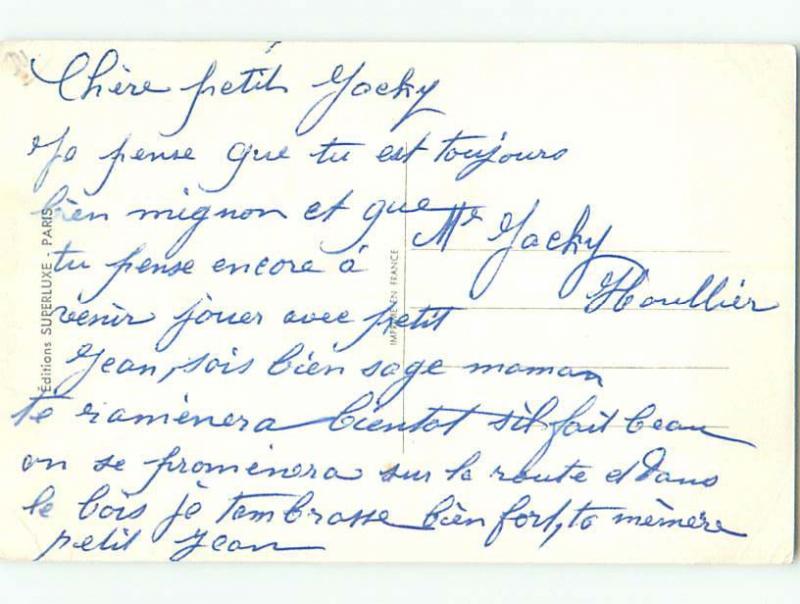 Chère petit Jacky
Je pense que tu est toujours
bien mignon et que
tu pense encore à
venir jouer avec petit
Jean, sois bien sage maman
te ramènera bientot s'il fait beau
on se promènera sur la route et dans
le bois je t'embrasse bien fort, ta mémère
petit Jean
Mr Jacky
Houllier
Éditions SUPERLUXE - PARIS
IMPRIMÉ EN FRANCE